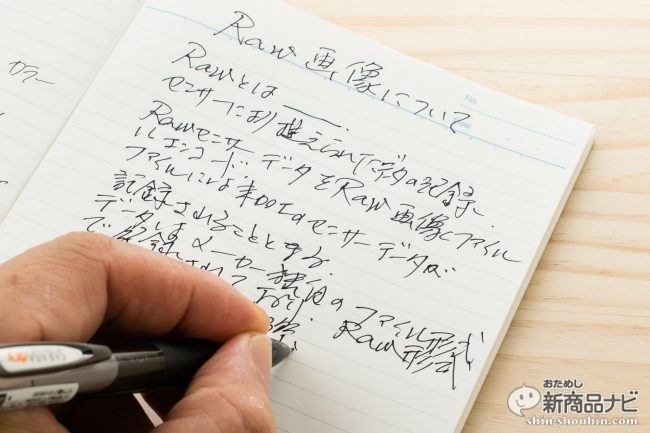 カラー
No.
Date
Raw画像について
Rawとは
センサーにより捉えられたデータの記録、
Rawセンサーデータをraw画像ファイル
にエンコード、
ファイルには未加工のセンサーデータが
記録されることとする
データは メーカー独自の ファイル形式
で記録されて おり Raw形式
おためし
新商品ナビ
shin-shouhin.com